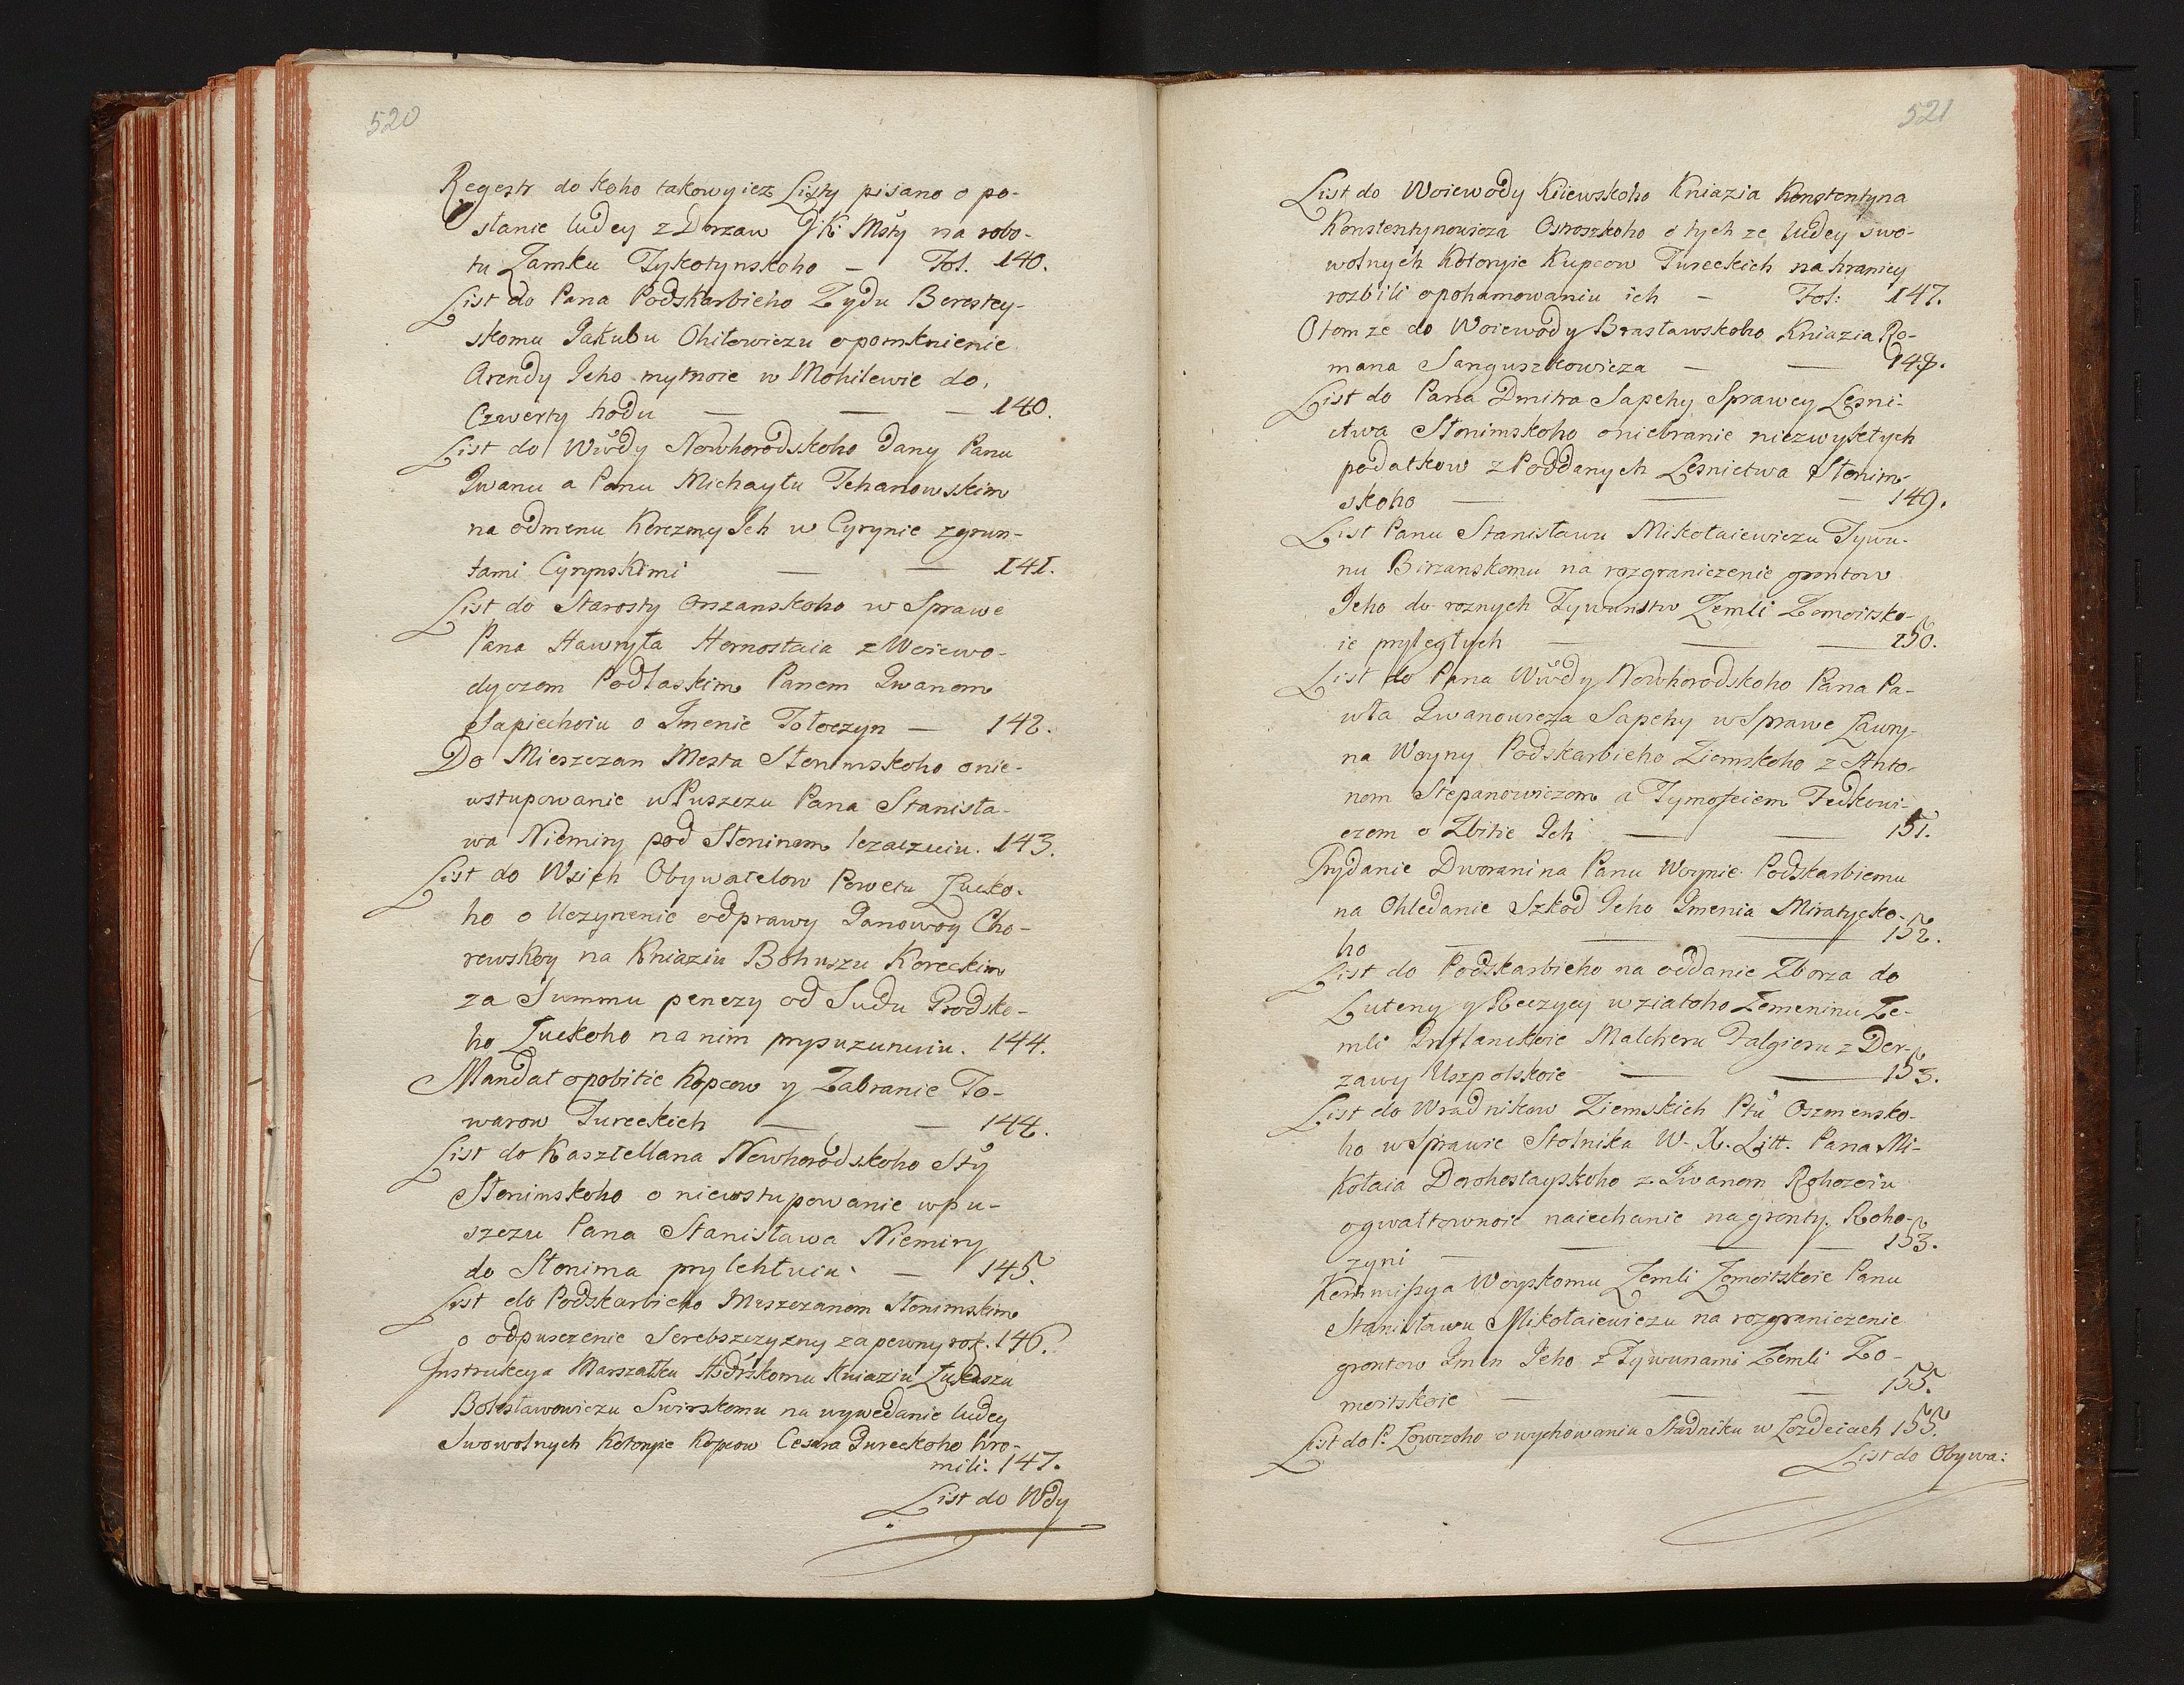 520
Regestr do koho takowyiez Listy pisano o po-
słanie ludey z Derzaw JK Msty na robo-
tu Zamku Tykotynskoho — Fol. 140.
List do Pana Podskarbieho Zydu Berestey-
skomu Jakubu Ohitowiczu o pomknienie
Arendy Jeho mytnoie w Mohilewie do
Czwerty hodu — — — 140.
List do Wwdy Nowhorodskoho dany Panu
Iwanu a Panu Michayłu Tehanowskim
na odmenu Korczmy Jch w Cyrynie z grun-
tami Cyrynskimi — — 141.
List do Starosty Orszanskoho w Sprawe
Pana Hawryła Hornostaia z Woiewo-
dyczom Podlaskim Panem Iwanom
Sapiechoiu o Imenie Tołoczyn — 142.
Do Mieszczan Mesta Słonimskoho o nie-
wstupowanie w Puszczu Pana Stanisła-
wa Niemiry pod Słonimom lezaczuiu. 143.
List do Wsich Obywatelow Powetu Łucko-
ho o Uczynenie odprawy Janowoy Cho-
rewskoy na Kniaziu Bohuszu Koreckim
za Summu penezy od Sudu Grodsko-
ho Łuckoho na nim prysuzunuiu. 144.
Mandat o pobitie Kopcow y Zabranie To-
warow Tureckich — — 144.
List do Kasztellana Nowhorodskoho Sty
Słonimskoho o niewstupowanie w pu-
szczu Pana Stanisława Niemiry
do Słonima prylehłuiu — 145.
List do Podskarbieho Mieszczanom Słonimskim
o odpuszczenie Serebszczyzny za pewny rok. 146.
Instrukcya Marszałku Hsdrskomu Kniaziu Łukaszu
Bolesławowiczu Swirskomu na wywedanie ludey
Swowolnych Kotoryie Kopcow Cesara Tureckoho hro-
mili. 147.
List do Wdy
521
List do Woiewody Kiiewskoho Kniazia Konstentyna
Konstentynowicza Ostrozkoho o tych ze ludey swo-
wolnych Kotoryie Kupcow Tureckich na hranicy
rozbili o pohamowaniu ich — Fol: 147.
O tom ze do Woiewody Brasławskoho Kniazia Ro-
mana Sanguszkowicza — — 148.
List do Pana Dmitra Sapehy Sprawcy Lesni-
ctwa Słonimskoho o niebranie niezwykłych
podatkow z Poddanych Lesnictwa Słonim-
skoho — — — 149.
List Panu Stanisławu Mikołaiewiczu Tywu-
nu Birzanskomu na rozgraniczenie grontow
Jeho do roznych Tywunstw Zemli Zomoitsko-
ie pryległych — — — 150.
List do Pana Wwdy Nowhorodskoho Pana Pa-
wła Iwanowicza Sapehy w Sprawe Ławry-
na Woyny Podskarbieho Ziemskoho z Anto-
nom Stepanowiczom a Tymofeiem Fedkowi-
czom o Zbitie Jch — — 151.
Prydanie Dworanina Panu Woynie Podskarbiemu
na Ohledanie Szkod Jeho Imenia Miratycko-
ho — — — 152.
List do Podskarbieho na oddanie Zborza do
Luteny y Reczycy wziatoho Zemeninu Ze-
mli Inflanckoie Malcheru Falgieru z Der-
zawy Uszpolskoie — — 153.
List do Wradnikow Ziemskich Ptu Oszmensko-
ho w Sprawie Stolnika W. X. Litt. Pana Mi-
kołaia Dorohostayskoho z Iwanom Rohozoiu
o gwałtownoie naiechanie na gronty Roho-
zyni — — — — 153.
Kommissya Woyskomu Zemli Zomoitskoie Panu
Stanisławu Mikołaiewiczu na rozgraniczenie
grontow Imen Jeho z Tywunami Zemli Zo-
moitskoie — — — 155.
List do P. Łowczoho o wychowaniu Stadniku w Łozdeiach 155.
List do Obywa: